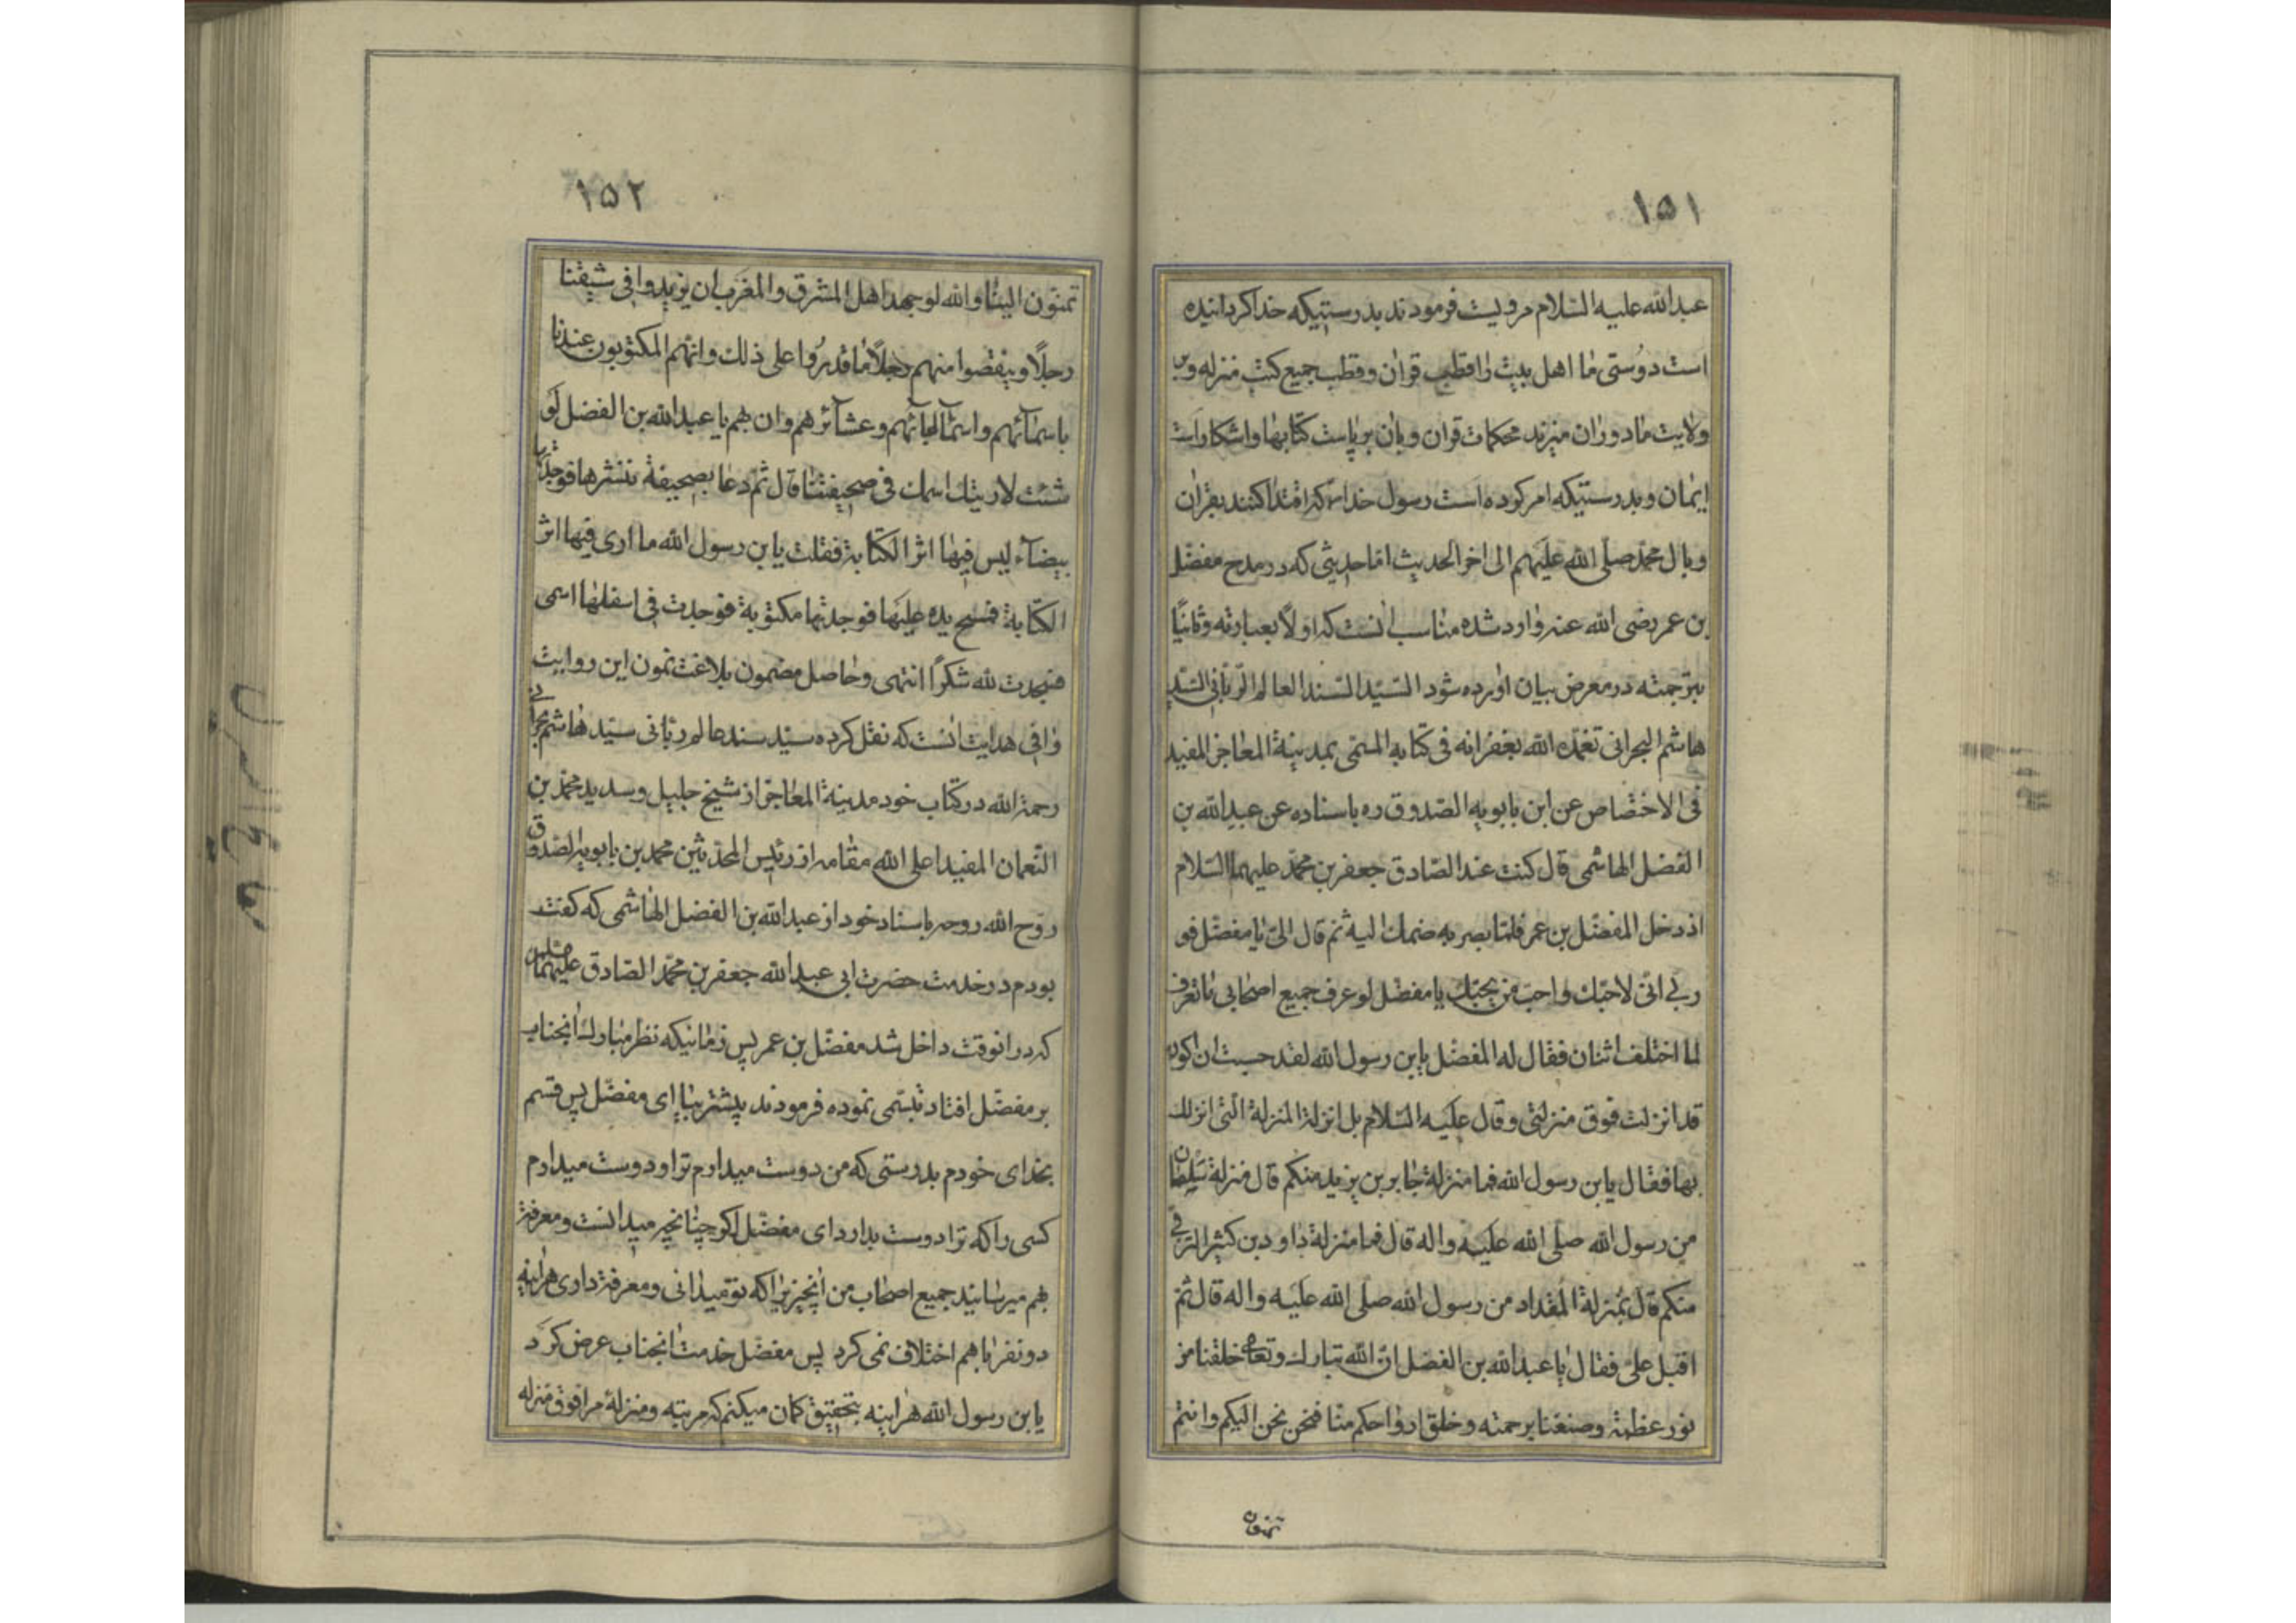 ١٥١
عبدالله علیه السّلام مرویست فرمودند بدرستیکه خدا کردانیده
است دوستی ما اهل بیت را قطب قران و قطب جمیع کتب منزله وبر
ولایت ما دوران میزند محکمات قران وبان برپاست کتابها واشکاراست
ایمان وبدرستیکه امر کرده است رسول خدا که اقتدا کنند بقران
وبال محمّد صلّی الله علیهم الی اخر الحدیث امّا حدیثی که در مدح مفضّل
بن عمر رضی الله عنه وارد شده مناسب انست که اولاً بعبارته وثانیاً
بترجمته در معرض بیان اورده شود السّید السّند العالم الرّبّانی السّید
هاشم البحرانی تغمّده الله بغفرانه فی کتابه المسمّی بمدینة المعاجز المفید
فی الاختصاص عن ابن بابویه الصّدوق ره باسناده عن عبدالله بن
الفضل الهاشمی قال کنت عند الصّادق جعفر بن محمّد علیهما السّلام
اذ دخل المفضّل بن عمر فلمّا بصر به ضحك الیه ثم قال الیّ یا مفضّل فو
ربّی انّی لاحبّك واحبّ من یحبّك یا مفضّل لو عرف جمیع اصحابی ما تعرف
لما اختلف اثنان فقال له المفضّل یابن رسول الله لقد حسبت ان اکون
قد انزلت فوق منزلتی وقال علیه السّلام بل انزلة المنزلة الّتی انزلك
بها فقال یابن رسول الله فما منزلة جابر بن یزید منکم قال منزلة سلمان
من رسول الله صلّی الله علیه واله قال فما منزلة داود بن کثیر الرّقی
منکم قال بمنزلة المقداد من رسول الله صلّی الله علیه واله قال ثمّ
اقبل علیّ فقال یا عبدالله بن الفضل انّ الله تبارك وتعالی خلقنا من
نور عظمته وصنعنا برحمته وخلق ارواحکم منّا فنحن نحن الیکم وانتم
تمنون
١٥٢
تمنّون الینا والله لو جهد اهل المشرق والمغرب ان یزیدوا فی شیعتنا
رجلاً وینقصوا منهم رجلاً ما قدروا علی ذلك وانّهم المکتوبون عندنا
باسمائهم واسماء ابائهم وعشآئرهم وان بهم یا عبدالله بن الفضل لو
شئت لاریتك اسمك فی صحیفتنا قال ثمّ دعا بصحیفة فنشرها فوجدتها
بیضآء لیس فیها اثر الکتابة فقلت یابن رسول الله ما اری فیها اثر
الکتابة فمسح یده علیها فوجدتها مکتوبة فوجدت فی اسفلها اسمی
فسجدت لله شکراً انتهی وحاصل مضمون بلاغت نمون این روایت
وافی هدایت انست که نقل کرده سیّد سند عالم ربّانی سیّد هاشم بحرانی
رحمة الله در کتاب خود مدینة المعاجز از شیخ جلیل وسدید محمّد بن
النّعمان المفید اعلی الله مقامه از رئیس المحدّثین محمد بن بابویه الصّدوق
روّح الله روحه باسناد خود از عبدالله بن الفضل الهاشمی که کفت
بودم در خدمت حضرت ابی عبدالله جعفر بن محمّد الصّادق علیهما السّلام
که در انوقت داخل شد مفضّل بن عمر پس زمانیکه نظر مبارك انجناب
بر مفضّل افتاد تبسّمی نموده فرمودند پیشتر بیا ای مفضّل پس قسم
بخدای خودم بدرستی که من دوست میدارم ترا ودوست میدارم
کسی را که ترا دوست بدارد ای مفضّل اکر چنانچه میدانست ومعرفة
بهم میرسانید جمیع اصحاب من انچیزیرا که تو میدانی ومعرفة داری هراینه
دو نفر باهم اختلاف نمی کرد پس مفضّل خدمت انجناب عرض کرد
یابن رسول الله هراینه بتحقیق کمان میکنم که مرتبه ومنزلهٔ مرا فوق منزله